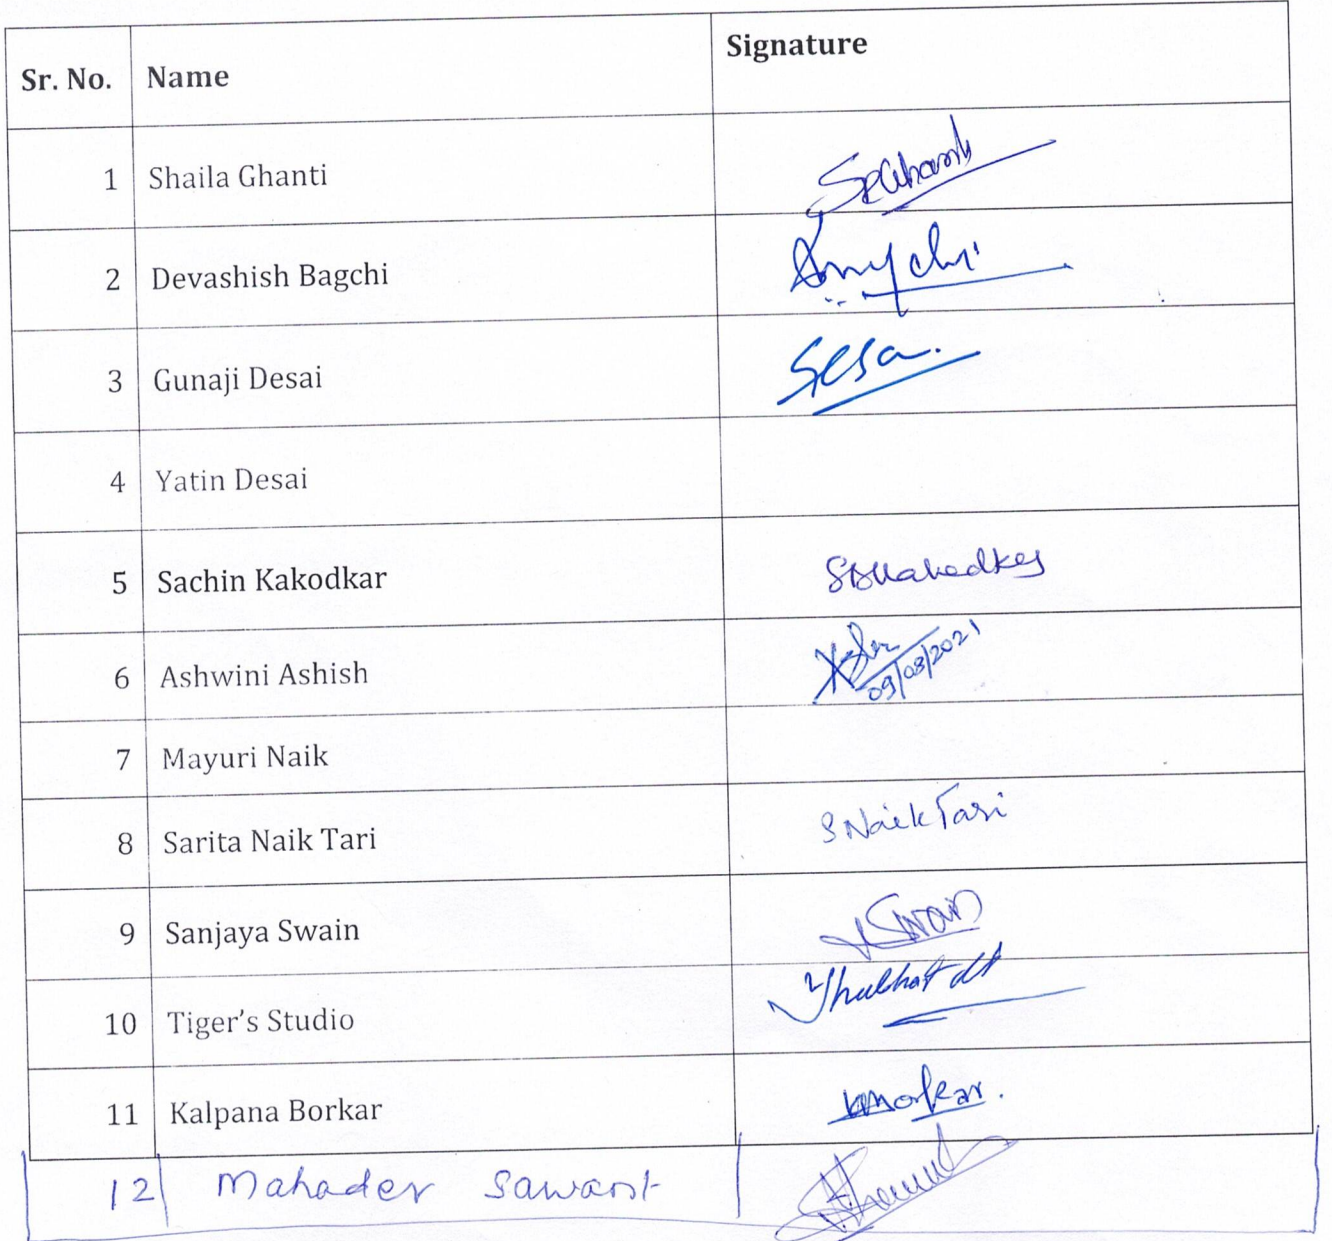 Sr. No. Name Signature
1 Shaila Ghanti
2 Devashish Bagchi
3 Gunaji Desai
4 Yatin Desai
5 Sachin Kakodkar
6 Ashwini Ashish 09/08/2021
7 Mayuri Naik
8 Sarita Naik Tari S Naik Tari
9 Sanjaya Swain Swain
10 Tiger's Studio
11 Kalpana Borkar
12 Mahadev Sawant